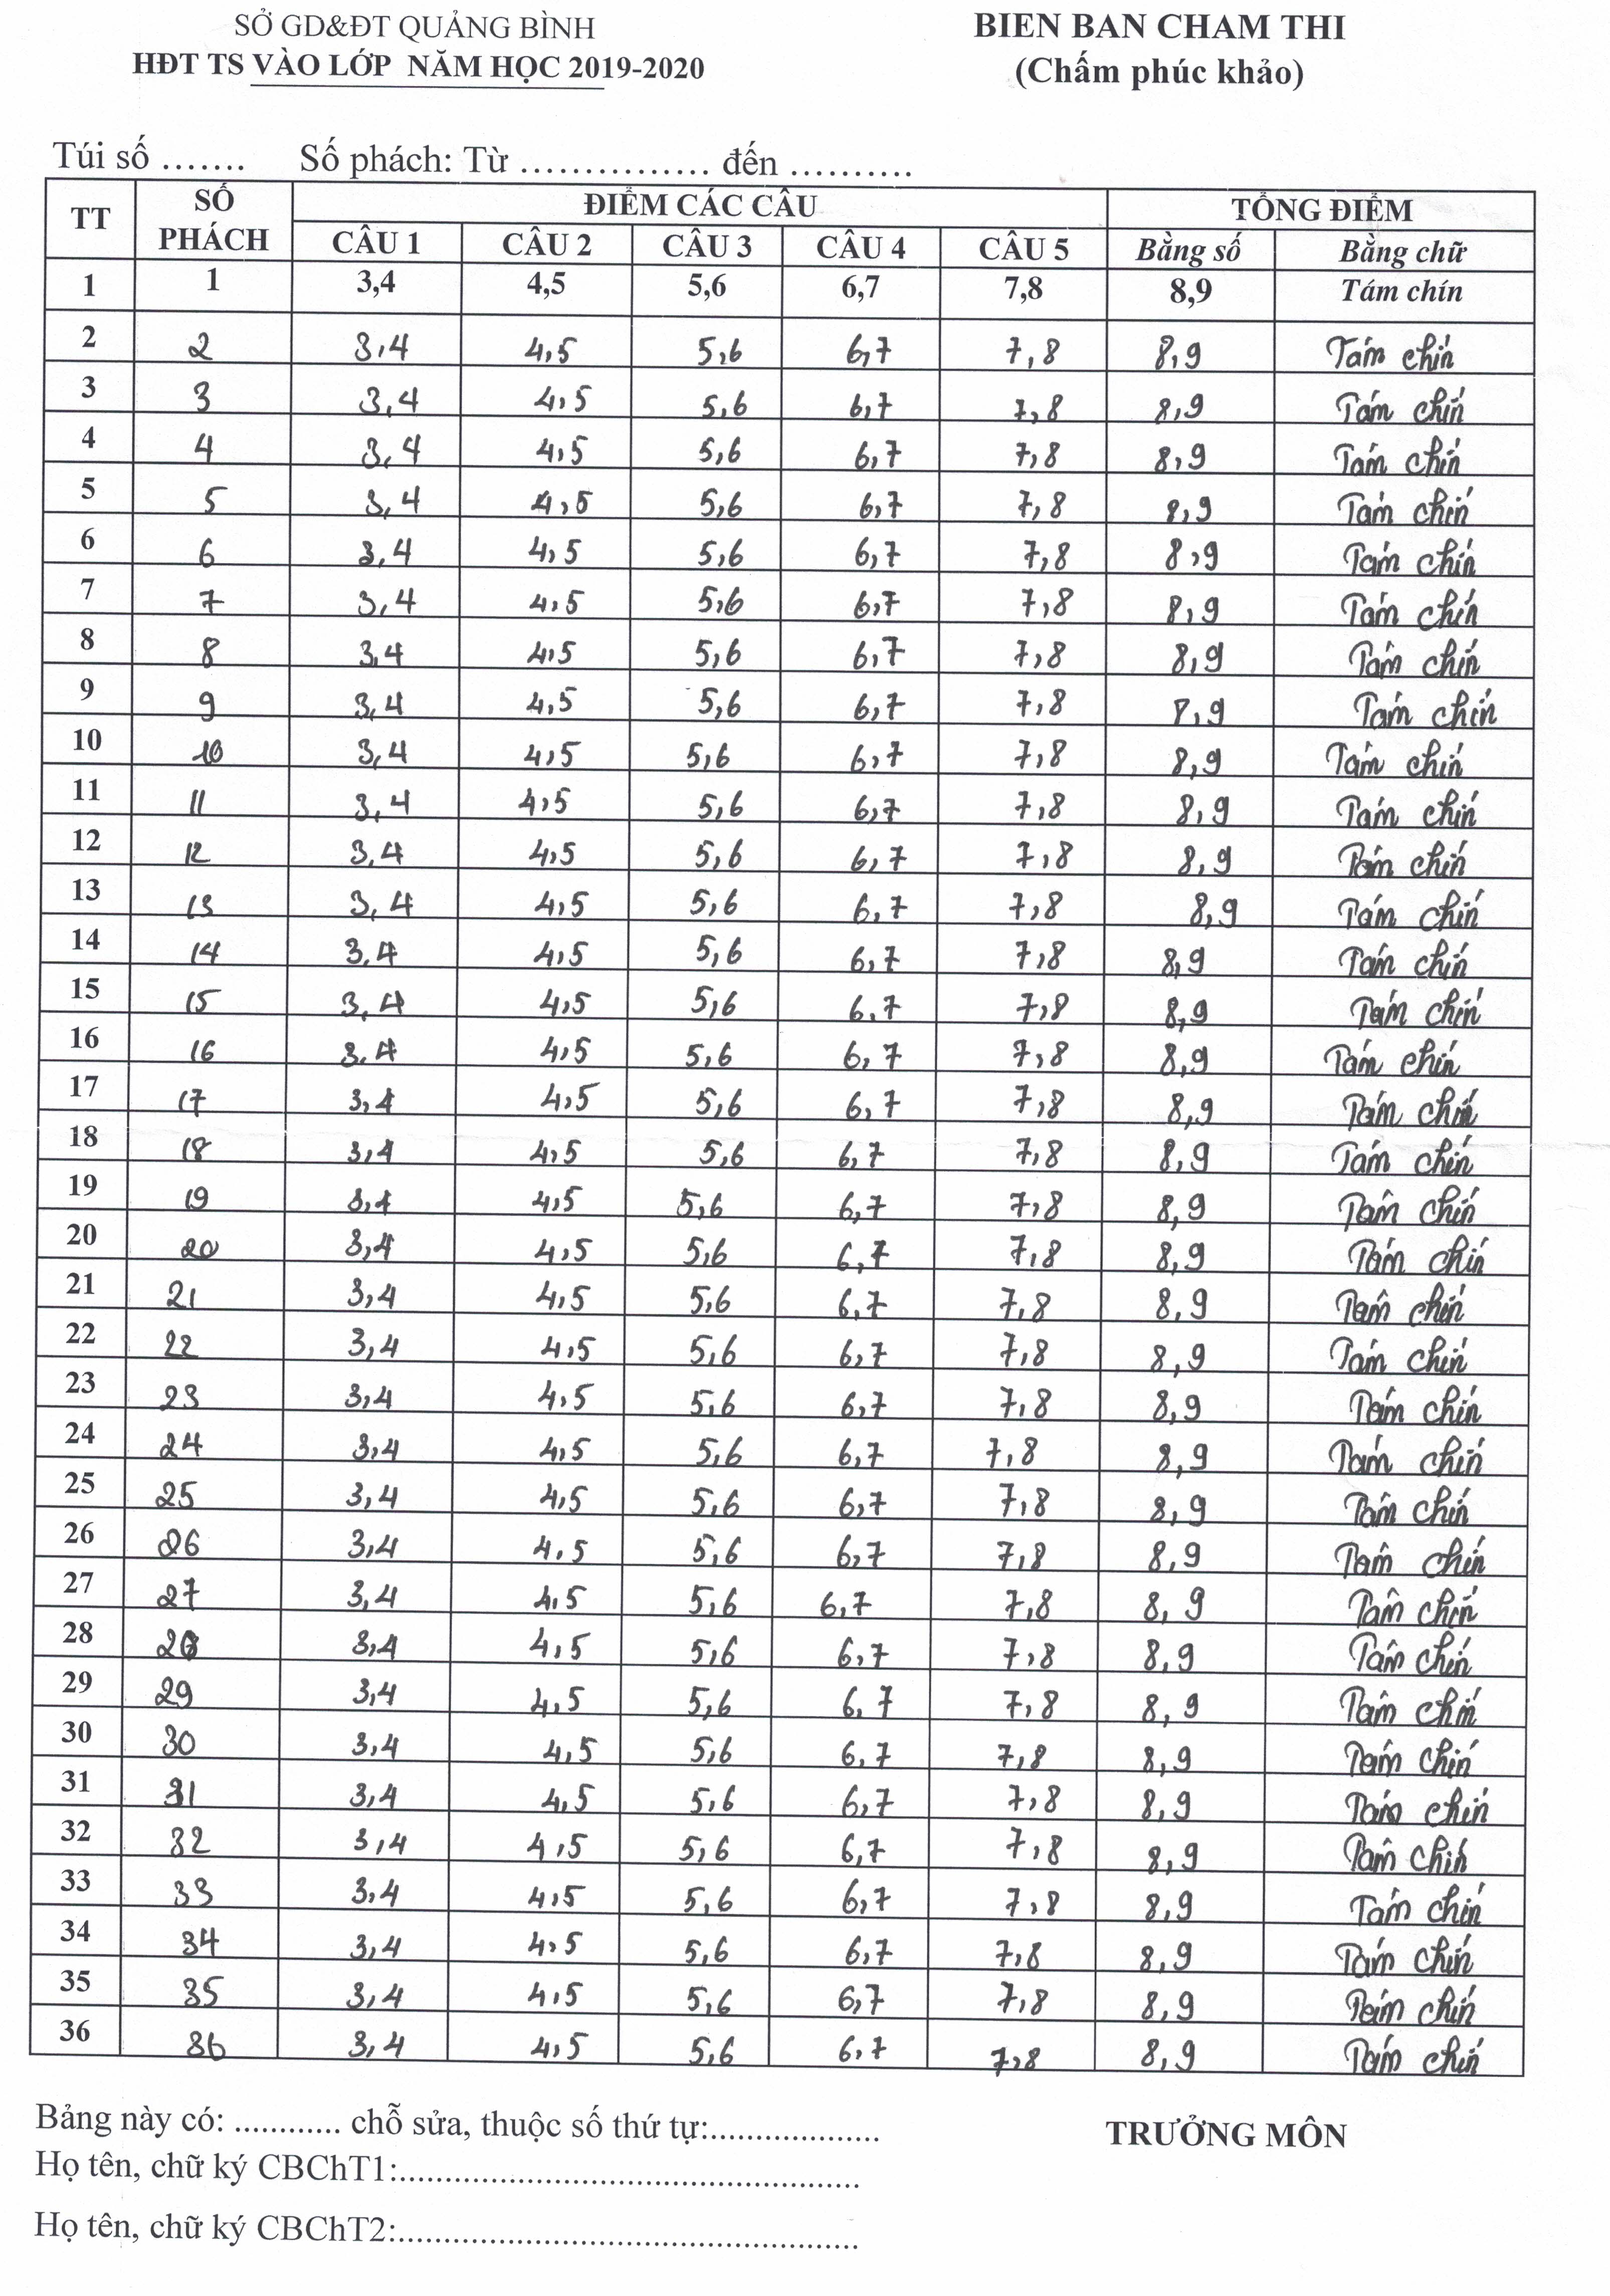 SỞ GD&ĐT QUẢNG BÌNH
HĐT TS VÀO LỚP NĂM HỌC 2019-2020
BIEN BAN CHAM THI
(Chấm phúc khảo)
Túi số ....... Số phách: Từ ................ đến ..........
TT SỐ PHÁCH ĐIỂM CÁC CÂU TỔNG ĐIỂM
CÂU 1 CÂU 2 CÂU 3 CÂU 4 CÂU 5 Bằng số Bằng chữ
1 1 3,4 4,5 5,6 6,7 7,8 8,9 Tám chín
2 2 3,4 4,5 5,6 6,7 7,8 8,9 Tám chín
3 3 3,4 4,5 5,6 6,7 7,8 8,9 Tám chín
4 4 3,4 4,5 5,6 6,7 7,8 8,9 Tám chín
5 5 3,4 4,5 5,6 6,7 7,8 8,9 Tám chín
6 6 3,4 4,5 5,6 6,7 7,8 8,9 Tám chín
7 7 3,4 4,5 5,6 6,7 7,8 8,9 Tám chín
8 8 3,4 4,5 5,6 6,7 7,8 8,9 Tám chín
9 9 3,4 4,5 5,6 6,7 7,8 8,9 Tám chín
10 10 3,4 4,5 5,6 6,7 7,8 8,9 Tám chín
11 11 3,4 4,5 5,6 6,7 7,8 8,9 Tám chín
12 12 3,4 4,5 5,6 6,7 7,8 8,9 Tám chín
13 13 3,4 4,5 5,6 6,7 7,8 8,9 Tám chín
14 14 3,4 4,5 5,6 6,7 7,8 8,9 Tám chín
15 15 3,4 4,5 5,6 6,7 7,8 8,9 Tám chín
16 16 3,4 4,5 5,6 6,7 7,8 8,9 Tám chín
17 17 3,4 4,5 5,6 6,7 7,8 8,9 Tám chín
18 18 3,4 4,5 5,6 6,7 7,8 8,9 Tám chín
19 19 3,4 4,5 5,6 6,7 7,8 8,9 Tám chín
20 20 3,4 4,5 5,6 6,7 7,8 8,9 Tám chín
21 21 3,4 4,5 5,6 6,7 7,8 8,9 Tám chín
22 22 3,4 4,5 5,6 6,7 7,8 8,9 Tám chín
23 23 3,4 4,5 5,6 6,7 7,8 8,9 Tám chín
24 24 3,4 4,5 5,6 6,7 7,8 8,9 Tám chín
25 25 3,4 4,5 5,6 6,7 7,8 8,9 Tám chín
26 26 3,4 4,5 5,6 6,7 7,8 8,9 Tám chín
27 27 3,4 4,5 5,6 6,7 7,8 8,9 Tám chín
28 28 3,4 4,5 5,6 6,7 7,8 8,9 Tám chín
29 29 3,4 4,5 5,6 6,7 7,8 8,9 Tám chín
30 30 3,4 4,5 5,6 6,7 7,8 8,9 Tám chín
31 31 3,4 4,5 5,6 6,7 7,8 8,9 Tám chín
32 32 3,4 4,5 5,6 6,7 7,8 8,9 Tám chín
33 33 3,4 4,5 5,6 6,7 7,8 8,9 Tám chín
34 34 3,4 4,5 5,6 6,7 7,8 8,9 Tám chín
35 35 3,4 4,5 5,6 6,7 7,8 8,9 Tám chín
36 36 3,4 4,5 5,6 6,7 7,8 8,9 Tám chín
Bảng này có: ............ chỗ sửa, thuộc số thứ tự:...................
TRƯỞNG MÔN
Họ tên, chữ ký CBChT1:....................................................
Họ tên, chữ ký CBChT2:....................................................